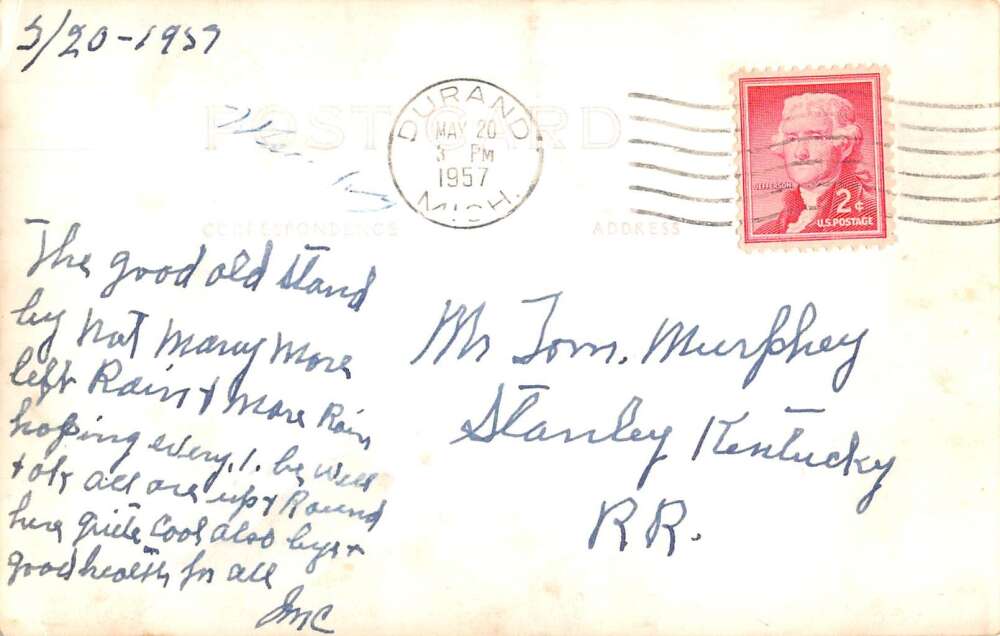 5/20-1957
POST CARD
DURAND
MAY 20
3 PM
1957
MICH.
JEFFERSON
2¢
U.S. POSTAGE
CORRESPONDENCE
ADDRESS
The good old stand
by Not Many More
left Rain & More Rain
hoping every.1. be well
& ok all are up & Round
here quite cool also bye &
good health for all
Mr Tom. Murphey
Stanley Kentucky
RR.